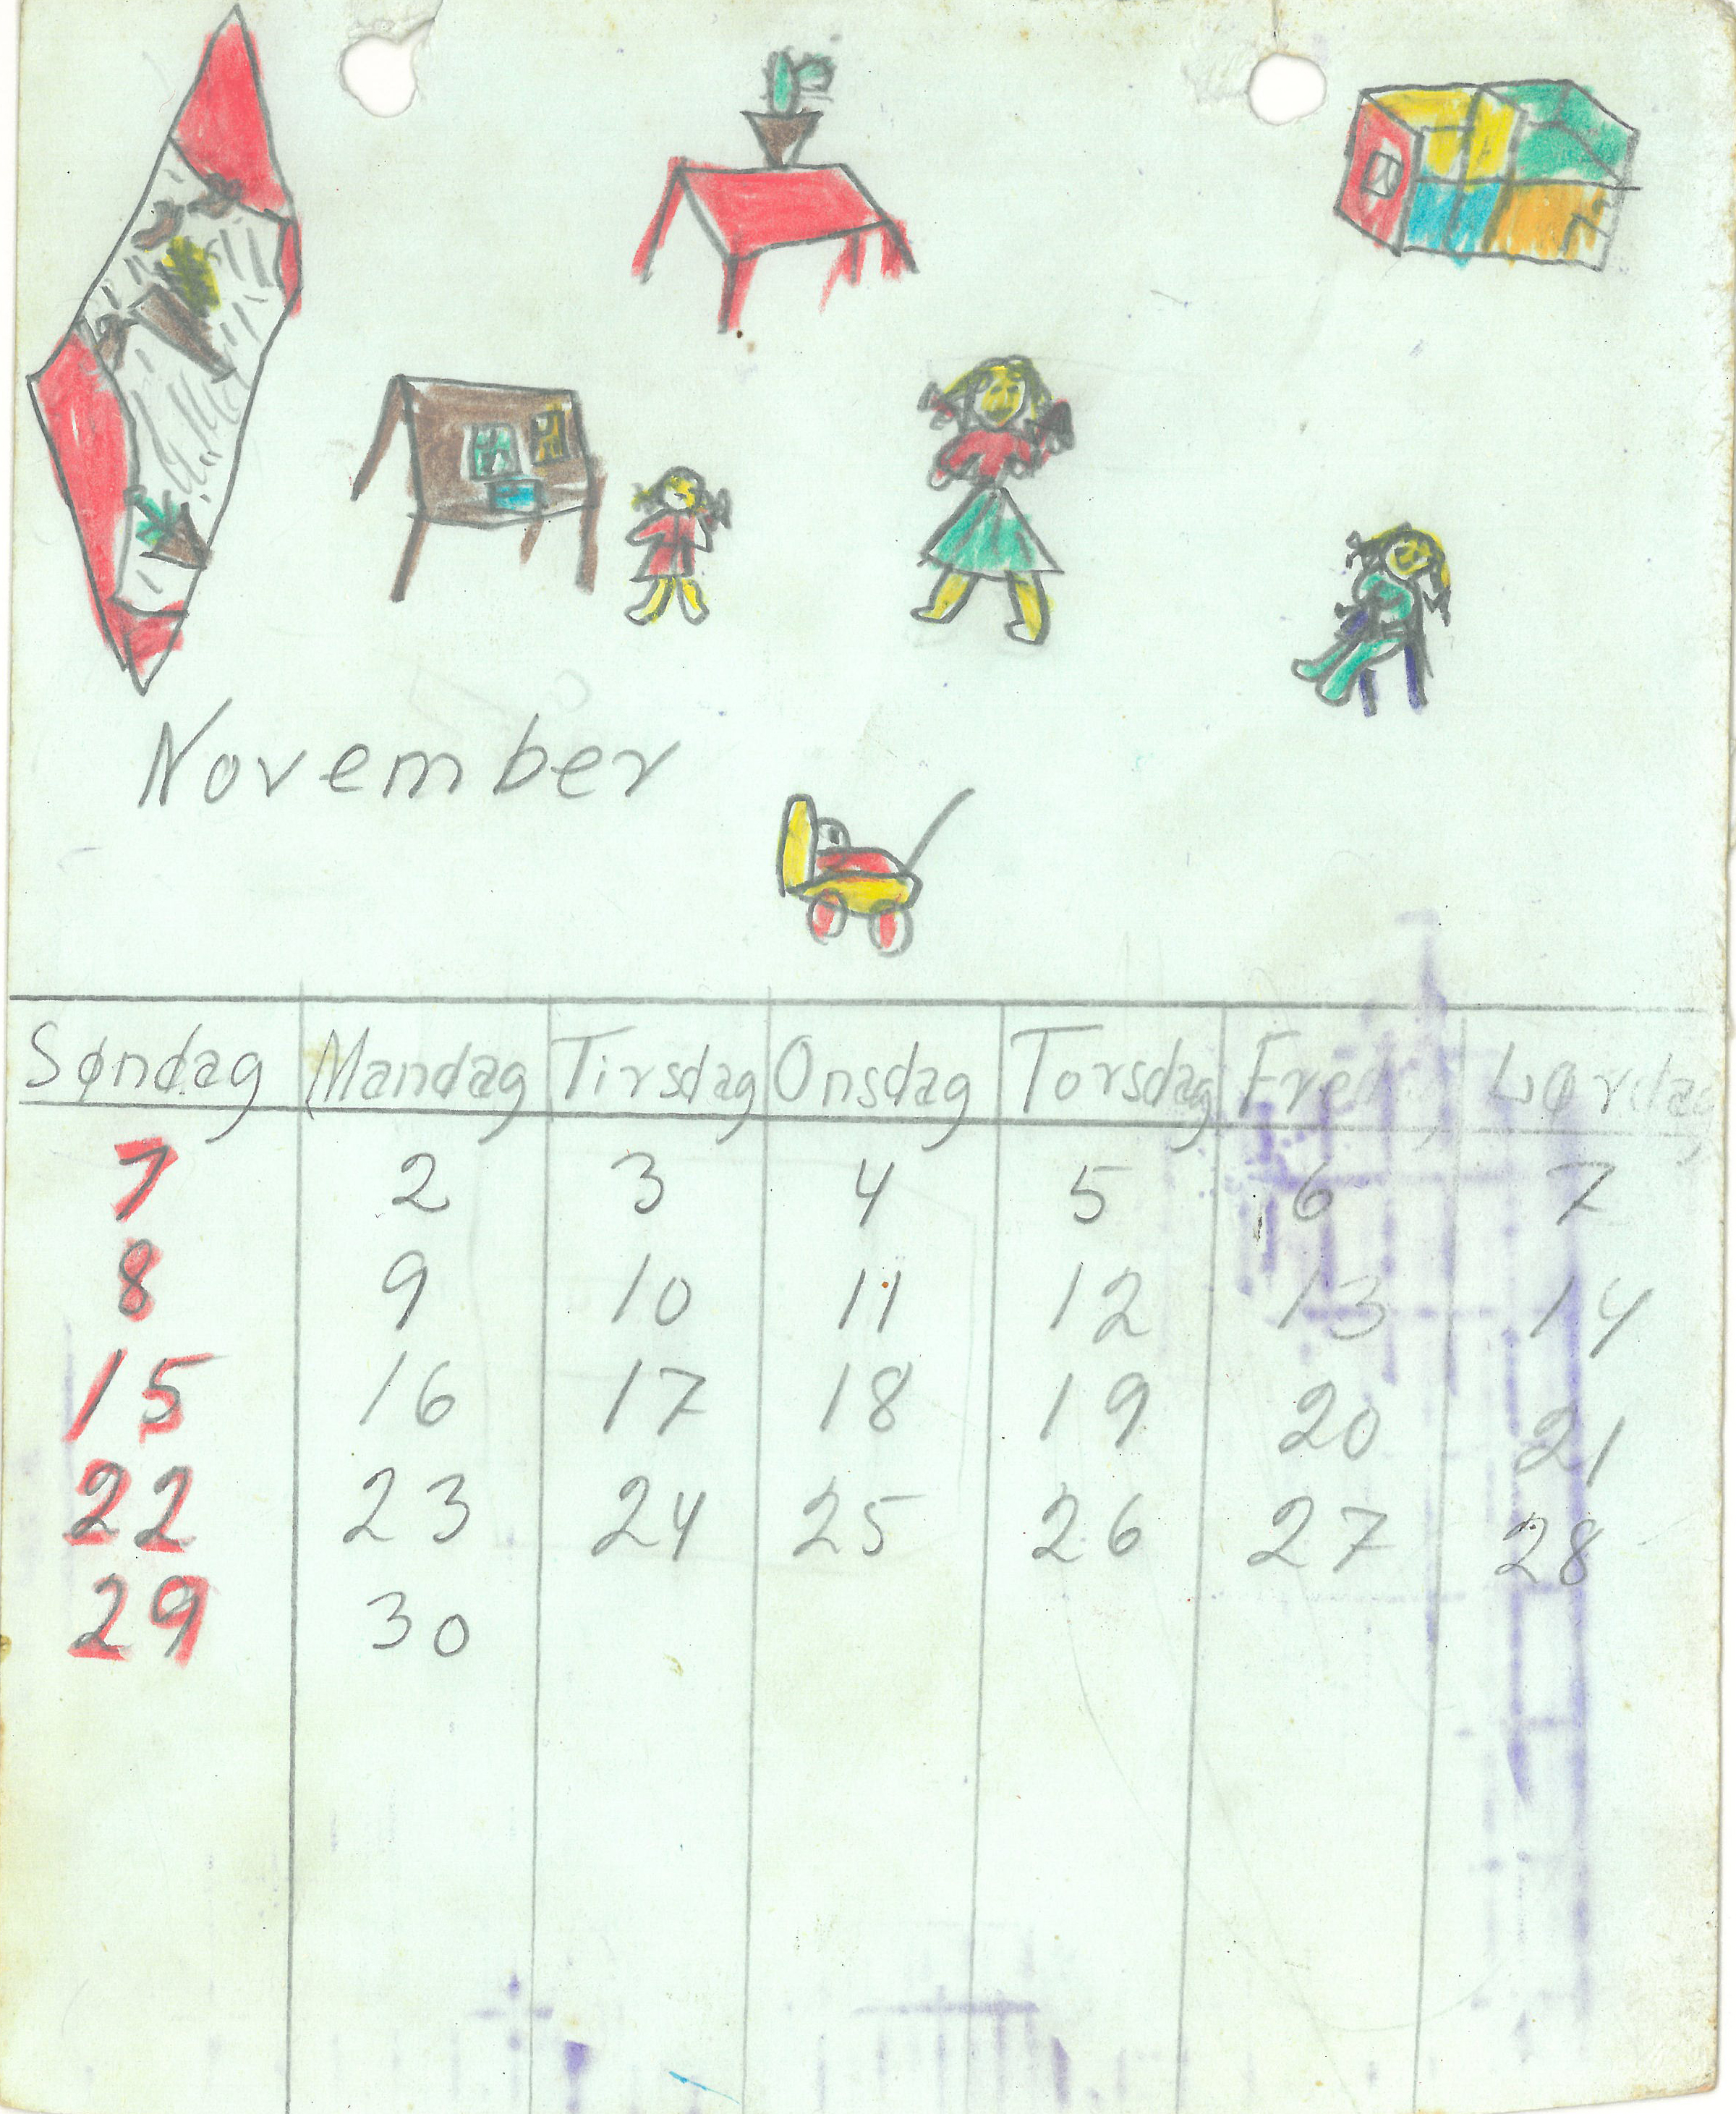 November
Søndag Mandag Tirsdag Onsdag Torsdag Fredag Lørdag
1 2 3 4 5 6 7
8 9 10 11 12 13 14
15 16 17 18 19 20 21
22 23 24 25 26 27 28
29 30